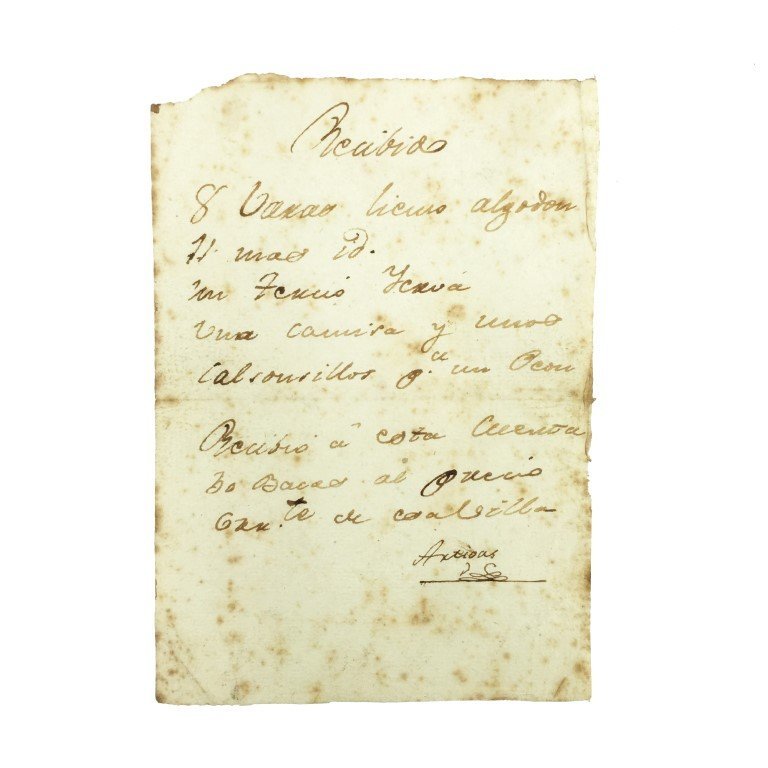 Recibido
8 Varas lienso algodon
11 mas id.
un Tercio Yerva
Una camisa y unos
Calsonsillos p.a un Peon
Recibio â esta Cuenta
Bacas al precio
Corr.te de esa Villa
Artigas